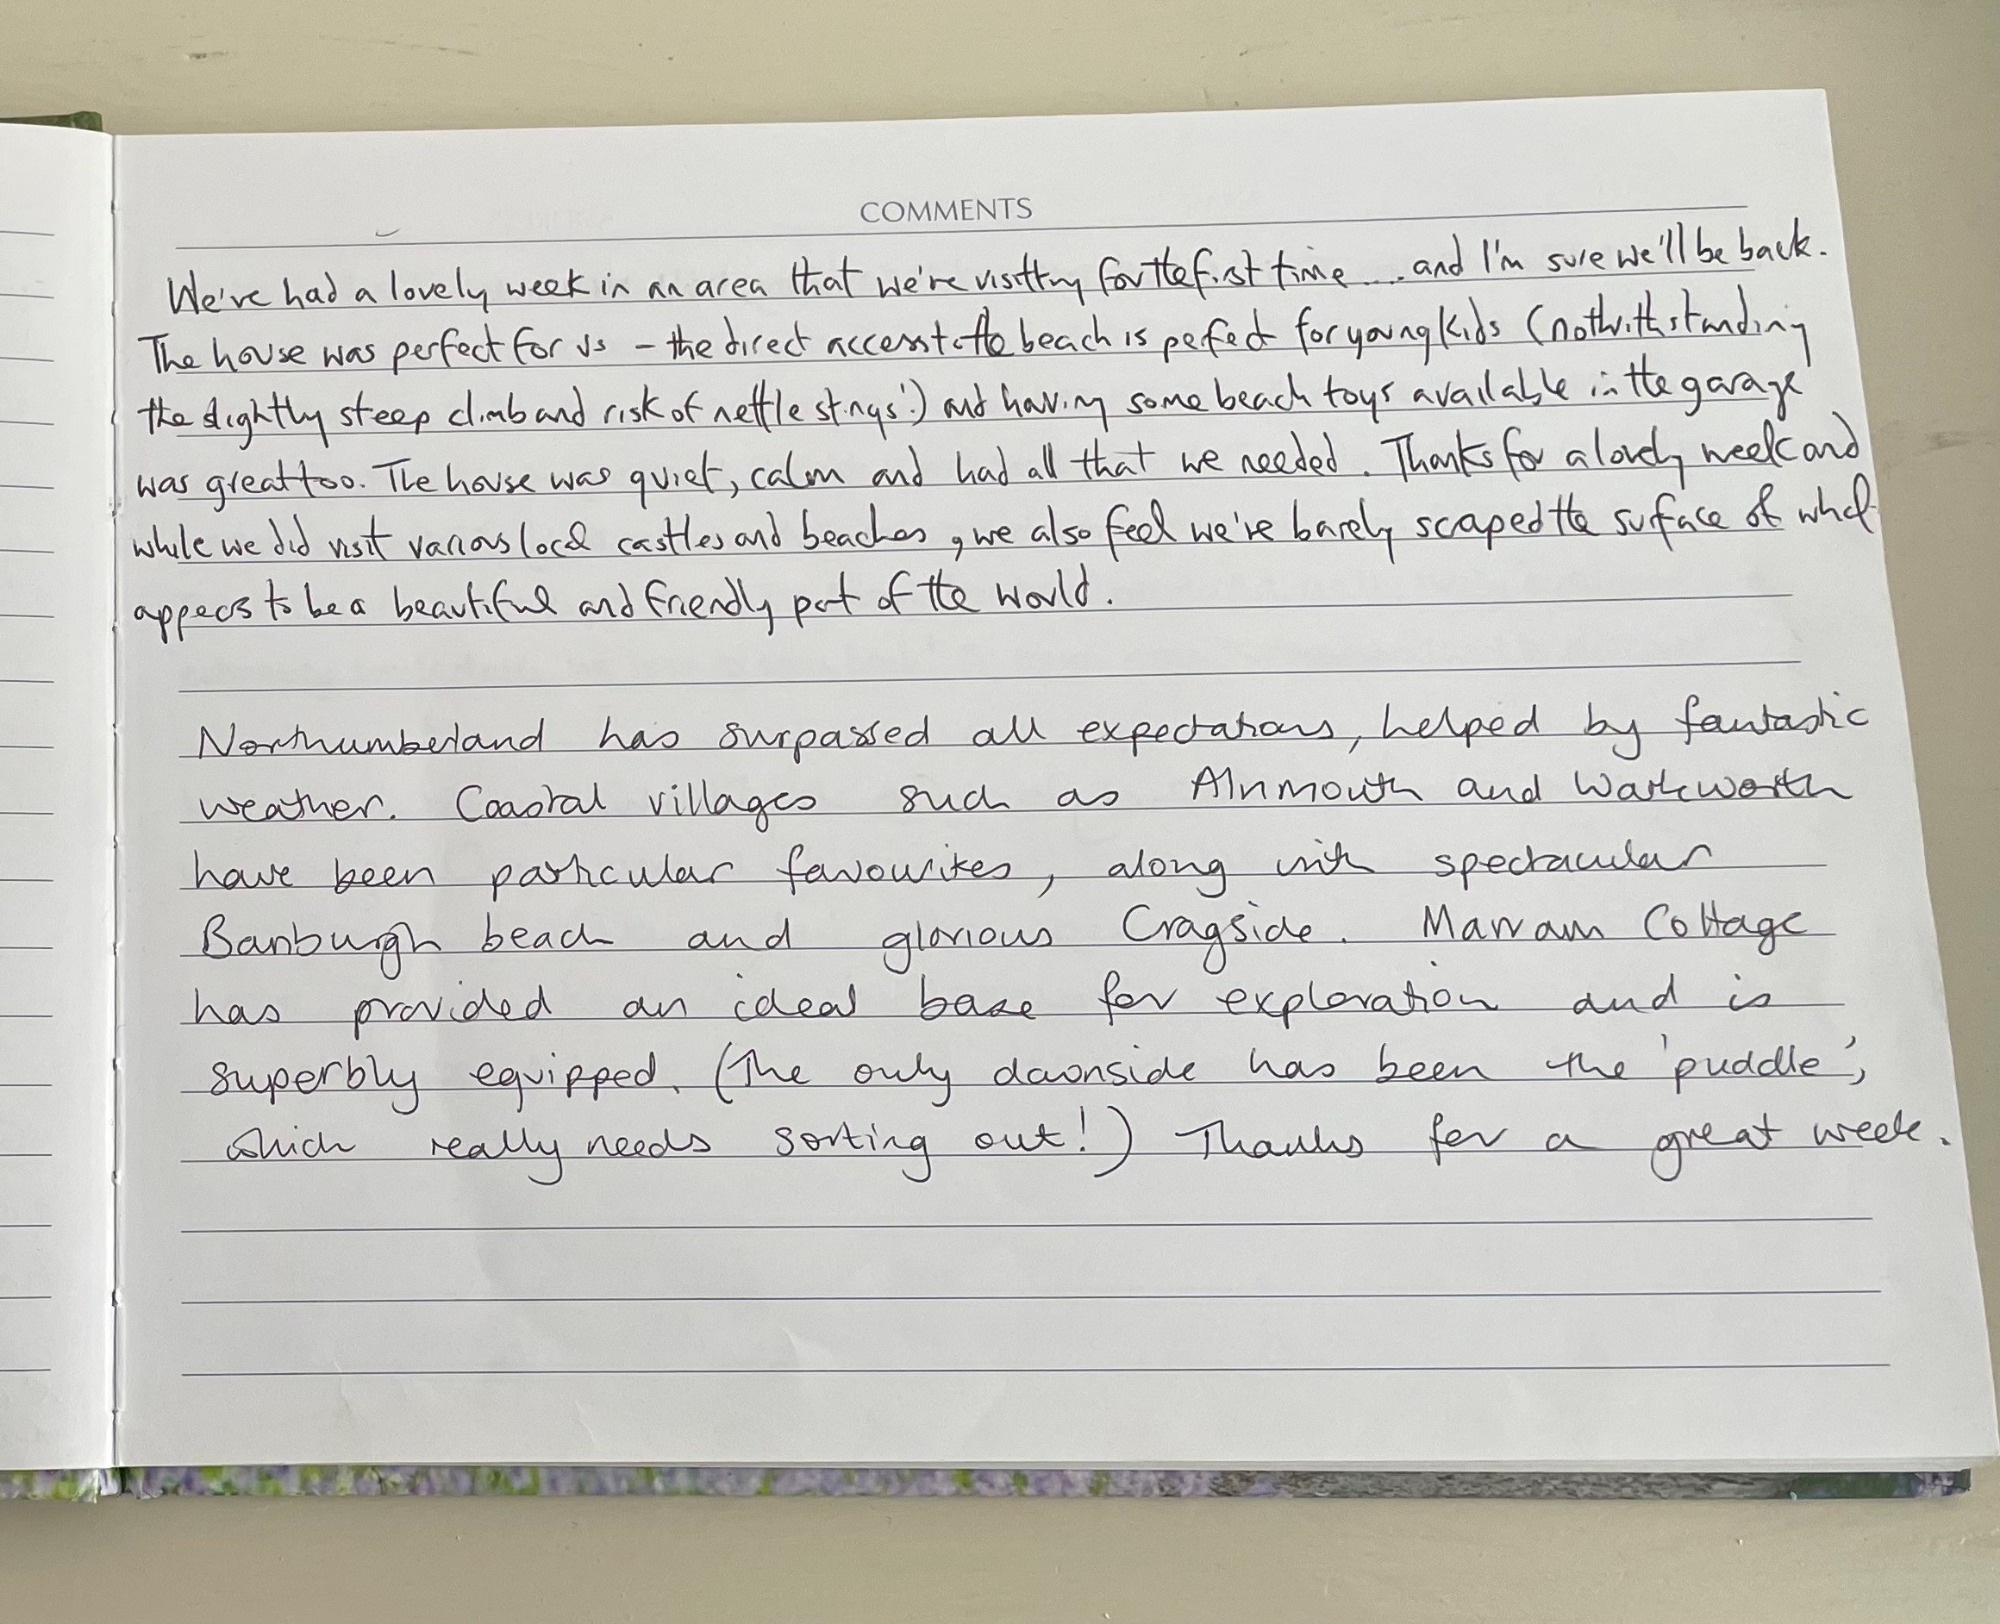 COMMENTS
We've had a lovely week in an area that we're visitng for the first time .... and I'm sure we'll be back.
The house was perfect for us - the direct access to the beach is pefect for young kids (notwithstanding
the slightly steep climb and risk of nettle stings!) and having some beach toys available in the garage
was great too. The house was quiet, calm and had all that we needed. Thanks for a lovely week and
while we did visit various local castles and beaches, we also feel we're barely scraped the surface of what
appears to be a beautiful and friendly part of the world.
Northumberland has surpassed all expectations, helped by fantastic
weather. Coastal villages such as Alnmouth and Warkworth
have been particular favourites, along with spectacular
Banburgh beach and glorious Cragside. Marram Cottage
has provided an ideal base for exploration and is
superbly equipped. (The only downside has been the 'puddle',
which really needs sorting out!) Thanks for a great week.